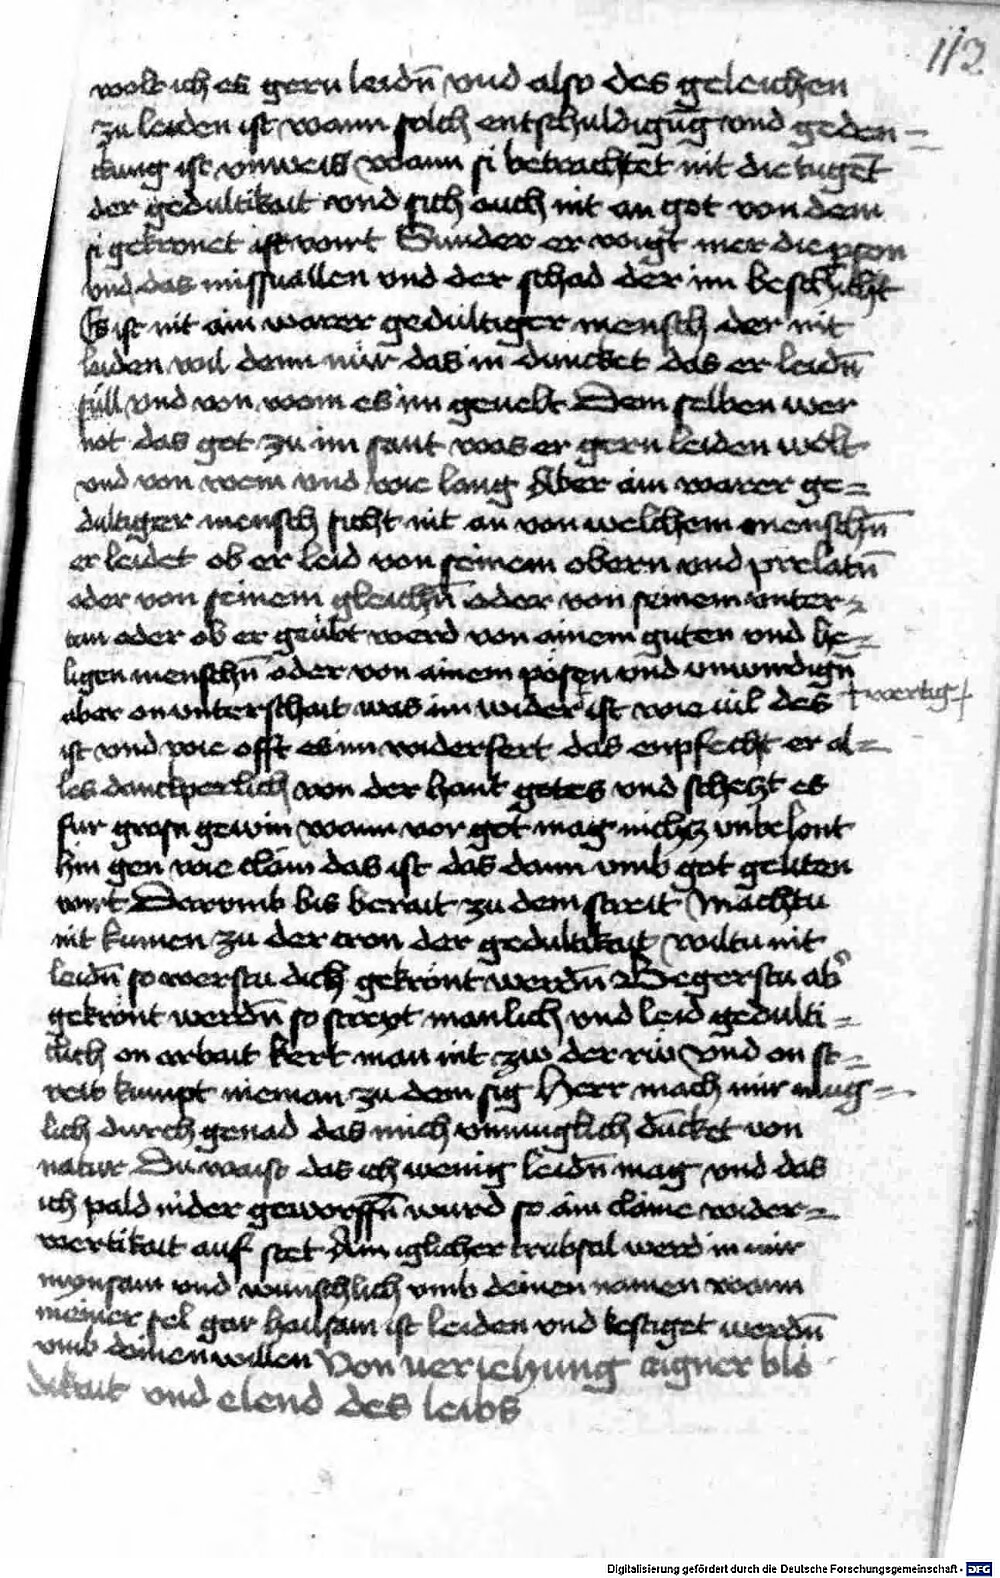 112
wolt ich es gern leidn̄ vnd also des geleichen
zu leiden ist wann solch entschuldigūg vnd geden=
ckung ist vnweis wann si betrachtet nit die tugēt
der gedultikait vnd sich auch nit an got von dem
si gekronet ist wirt Sunder er wigt mer die pson
vnd das missuallen vnd der schad der im beschicht
Es ist nit ain warer gedultiger mensch der nit
leiden wil denn nür das in duncket das er leidn̄
süll vnd von wem es im geuelt Dem selben wer
not das got zu im sant was er gern leiden wölt
vnd von wem vnd wie lang Aber ain warer ge=
dultiger mensch sicht nit an von welchem menschn̄
er leidet ob er leid von seinem obern vnd prelatn̄
oder von seinem gleichn̄ oder von seinem vnter=
tan oder ob er geübt werd von ainem guten vnd he=
ligen menschn̄ oder von ainem pösen vnd vnwirdign̄
aber on vnterschait was im wider ist wie uil des
+ wertig +
ist vnd wie offt es im widerfert das enpfecht er al=
les danckperlich von der hant gotes vnd schetzt es
für grosn gewin wann vor got mag nichtz vnbelont
hin gen wie clain das ist das dann vmb got geliten
wirt Darvmb bis berait zu dem streit Machtu
nit kumen zu der cron der gedultikait wiltu nit
leidn̄ so werstu dich gekrönt werdn̄ Begerstu ab͛
gekrönt werdn̄ so streyt manlich vnd leid gedulti=
clich on arbait kert man nit zw der rw vnd on st=
reit kumpt nieman zu dem sig Herr mach mir mug=
lich durch genad das mich vnmuglich du̅cket von
natur Du waist das ich wenig leidn̄ mag vnd das
ich pald nider geworffn̄ wurd so ain claine wider=
wertikait auf stet Ain iglicher trübsal werd in mir
mynsam vnd wunschlich vmb deinen namen wann
meiner sel gar hailsam ist leiden vnd kestiget werdn̄
vmb deinen willen Von veriehung aigner blö
dikait vnd elend des leibs
Digitalisierung gefördert durch die Deutsche Forschungsgemeinschaft - DFG